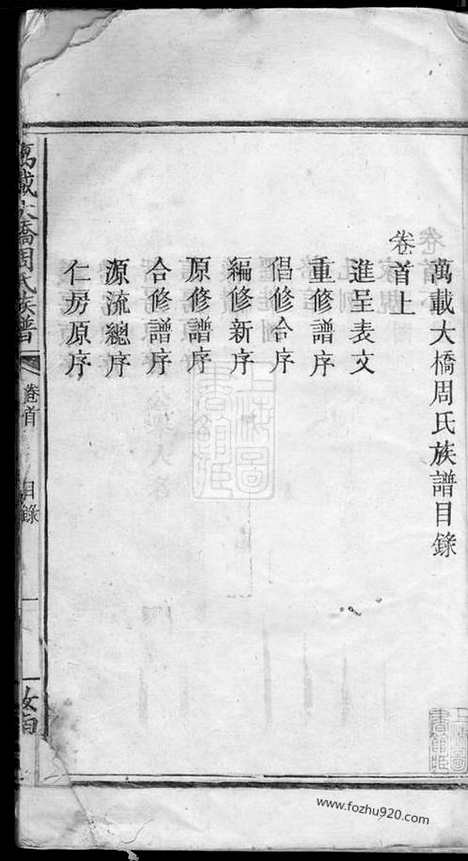 萬載大橋周氏族譜目錄
卷首上
進呈表文
重修譜序
倡修合序
編修新序
原修譜序
合修譜序
源流總序
仁房原序
萬載大橋周氏族譜
卷首
目錄
一
汝南
上海圖書館藏
www.fozhu920.com